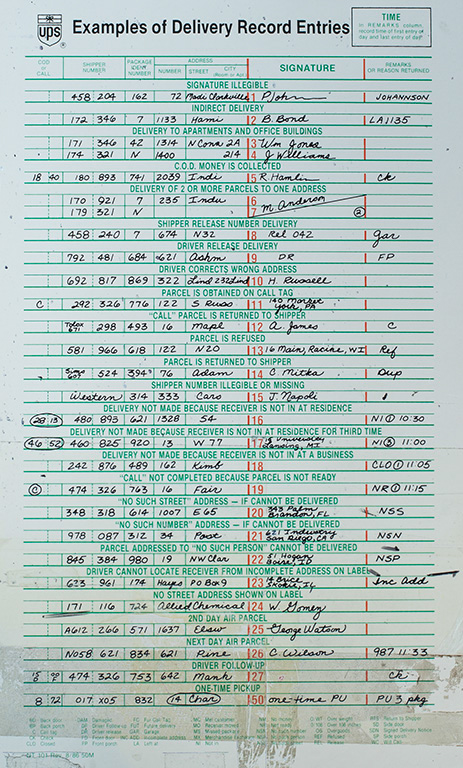 ups
Examples of Delivery Record Entries
TIME
in REMARKS column, record time of first entry of day and last entry of day
COD or CALL
SHIPPER NUMBER
PACKAGE IDENT NUMBER
ADDRESS
NUMBER STREET CITY (Room or Apt.)
SIGNATURE
REMARKS OR REASON RETURNED
SIGNATURE ILLEGIBLE
458 204 162 72 Madi P. John JOHANNSON
INDIRECT DELIVERY
172 346 7 1133 Hami 2 B. Bond LA1135
DELIVERY TO APARTMENTS AND OFFICE BUILDINGS
171 346 42 1314 N Conn 2A 3 Wm Jones
174 321 N 1400 214 4 J Williams
C.O.D. MONEY IS COLLECTED
18 40 180 893 741 2039 Indi 5 R. Hamlin Ck
DELIVERY OF 2 OR MORE PARCELS TO ONE ADDRESS
170 921 7 235 Indu 6
179 321 N 7 M. Anderson 2
SHIPPER RELEASE NUMBER DELIVERY
458 240 7 674 N32 8 Rel 042 Gar
DRIVER RELEASE DELIVERY
792 481 684 621 Ashm 9 DR FP
DRIVER CORRECTS WRONG ADDRESS
692 817 869 322 Lind 232 Lind 10 H. Russell
PARCEL IS OBTAINED ON CALL TAG
C 292 326 776 122 S Russ 11 140 Market York, PA
"CALL" PARCEL IS RETURNED TO SHIPPER
671 298 493 16 Mapl 12 A. James C
PARCEL IS REFUSED
581 966 618 122 N20 13 16 Main, Racine, WI Ref
PARCEL IS RETURNED TO SHIPPER
Sims 607 524 394 76 Adam 14 C. Mitka Dup
SHIPPER NUMBER ILLEGIBLE OR MISSING
Western 314 333 Cars 15 J. Napoli
DELIVERY NOT MADE BECAUSE RECEIVER IS NOT IN AT RESIDENCE
28 13 480 893 621 1328 54 16 NI 1 10:30
DELIVERY NOT MADE BECAUSE RECEIVER IS NOT IN AT RESIDENCE FOR THIRD TIME
46 52 460 825 920 13 W 77 17 University Lansing, MI NI 3 11:00
DELIVERY NOT MADE BECAUSE RECEIVER IS NOT IN AT A BUSINESS
242 876 489 162 Kimb 18 CLO 1 11:05
"CALL" NOT COMPLETED BECAUSE PARCEL IS NOT READY
C 474 326 763 16 Fair 19 NR 1 11:15
"NO SUCH STREET" ADDRESS — IF CANNOT BE DELIVERED
348 318 614 1007 E 65 20 343 Palm Brandon, FL NSS
"NO SUCH NUMBER" ADDRESS — IF CANNOT BE DELIVERED
978 087 312 34 Post 21 621 Industry San Diego, CA NSN
PARCEL ADDRESSED TO "NO SUCH PERSON" CANNOT BE DELIVERED
845 384 980 19 NW Clar 22 51 Hogan Boise, ID NSP
DRIVER CANNOT LOCATE RECEIVER FROM INCOMPLETE ADDRESS ON LABEL
623 961 174 Hayes PO Box 9 23 14 Brice Skokie, IL Inc Add
NO STREET ADDRESS SHOWN ON LABEL
171 116 724 Allied Chemical 24 W. Gomey
2ND DAY AIR PARCEL
A612 266 571 1637 Elsw 25 George Watson
NEXT DAY AIR PARCEL
N058 621 834 621 Pine 26 C Wilson 987 11:33
DRIVER FOLLOW-UP
474 326 753 642 Mank 27 ck
ONE-TIME PICKUP
8 72 017 X05 832 14 Char 50 one-time PU PU 3 pkg